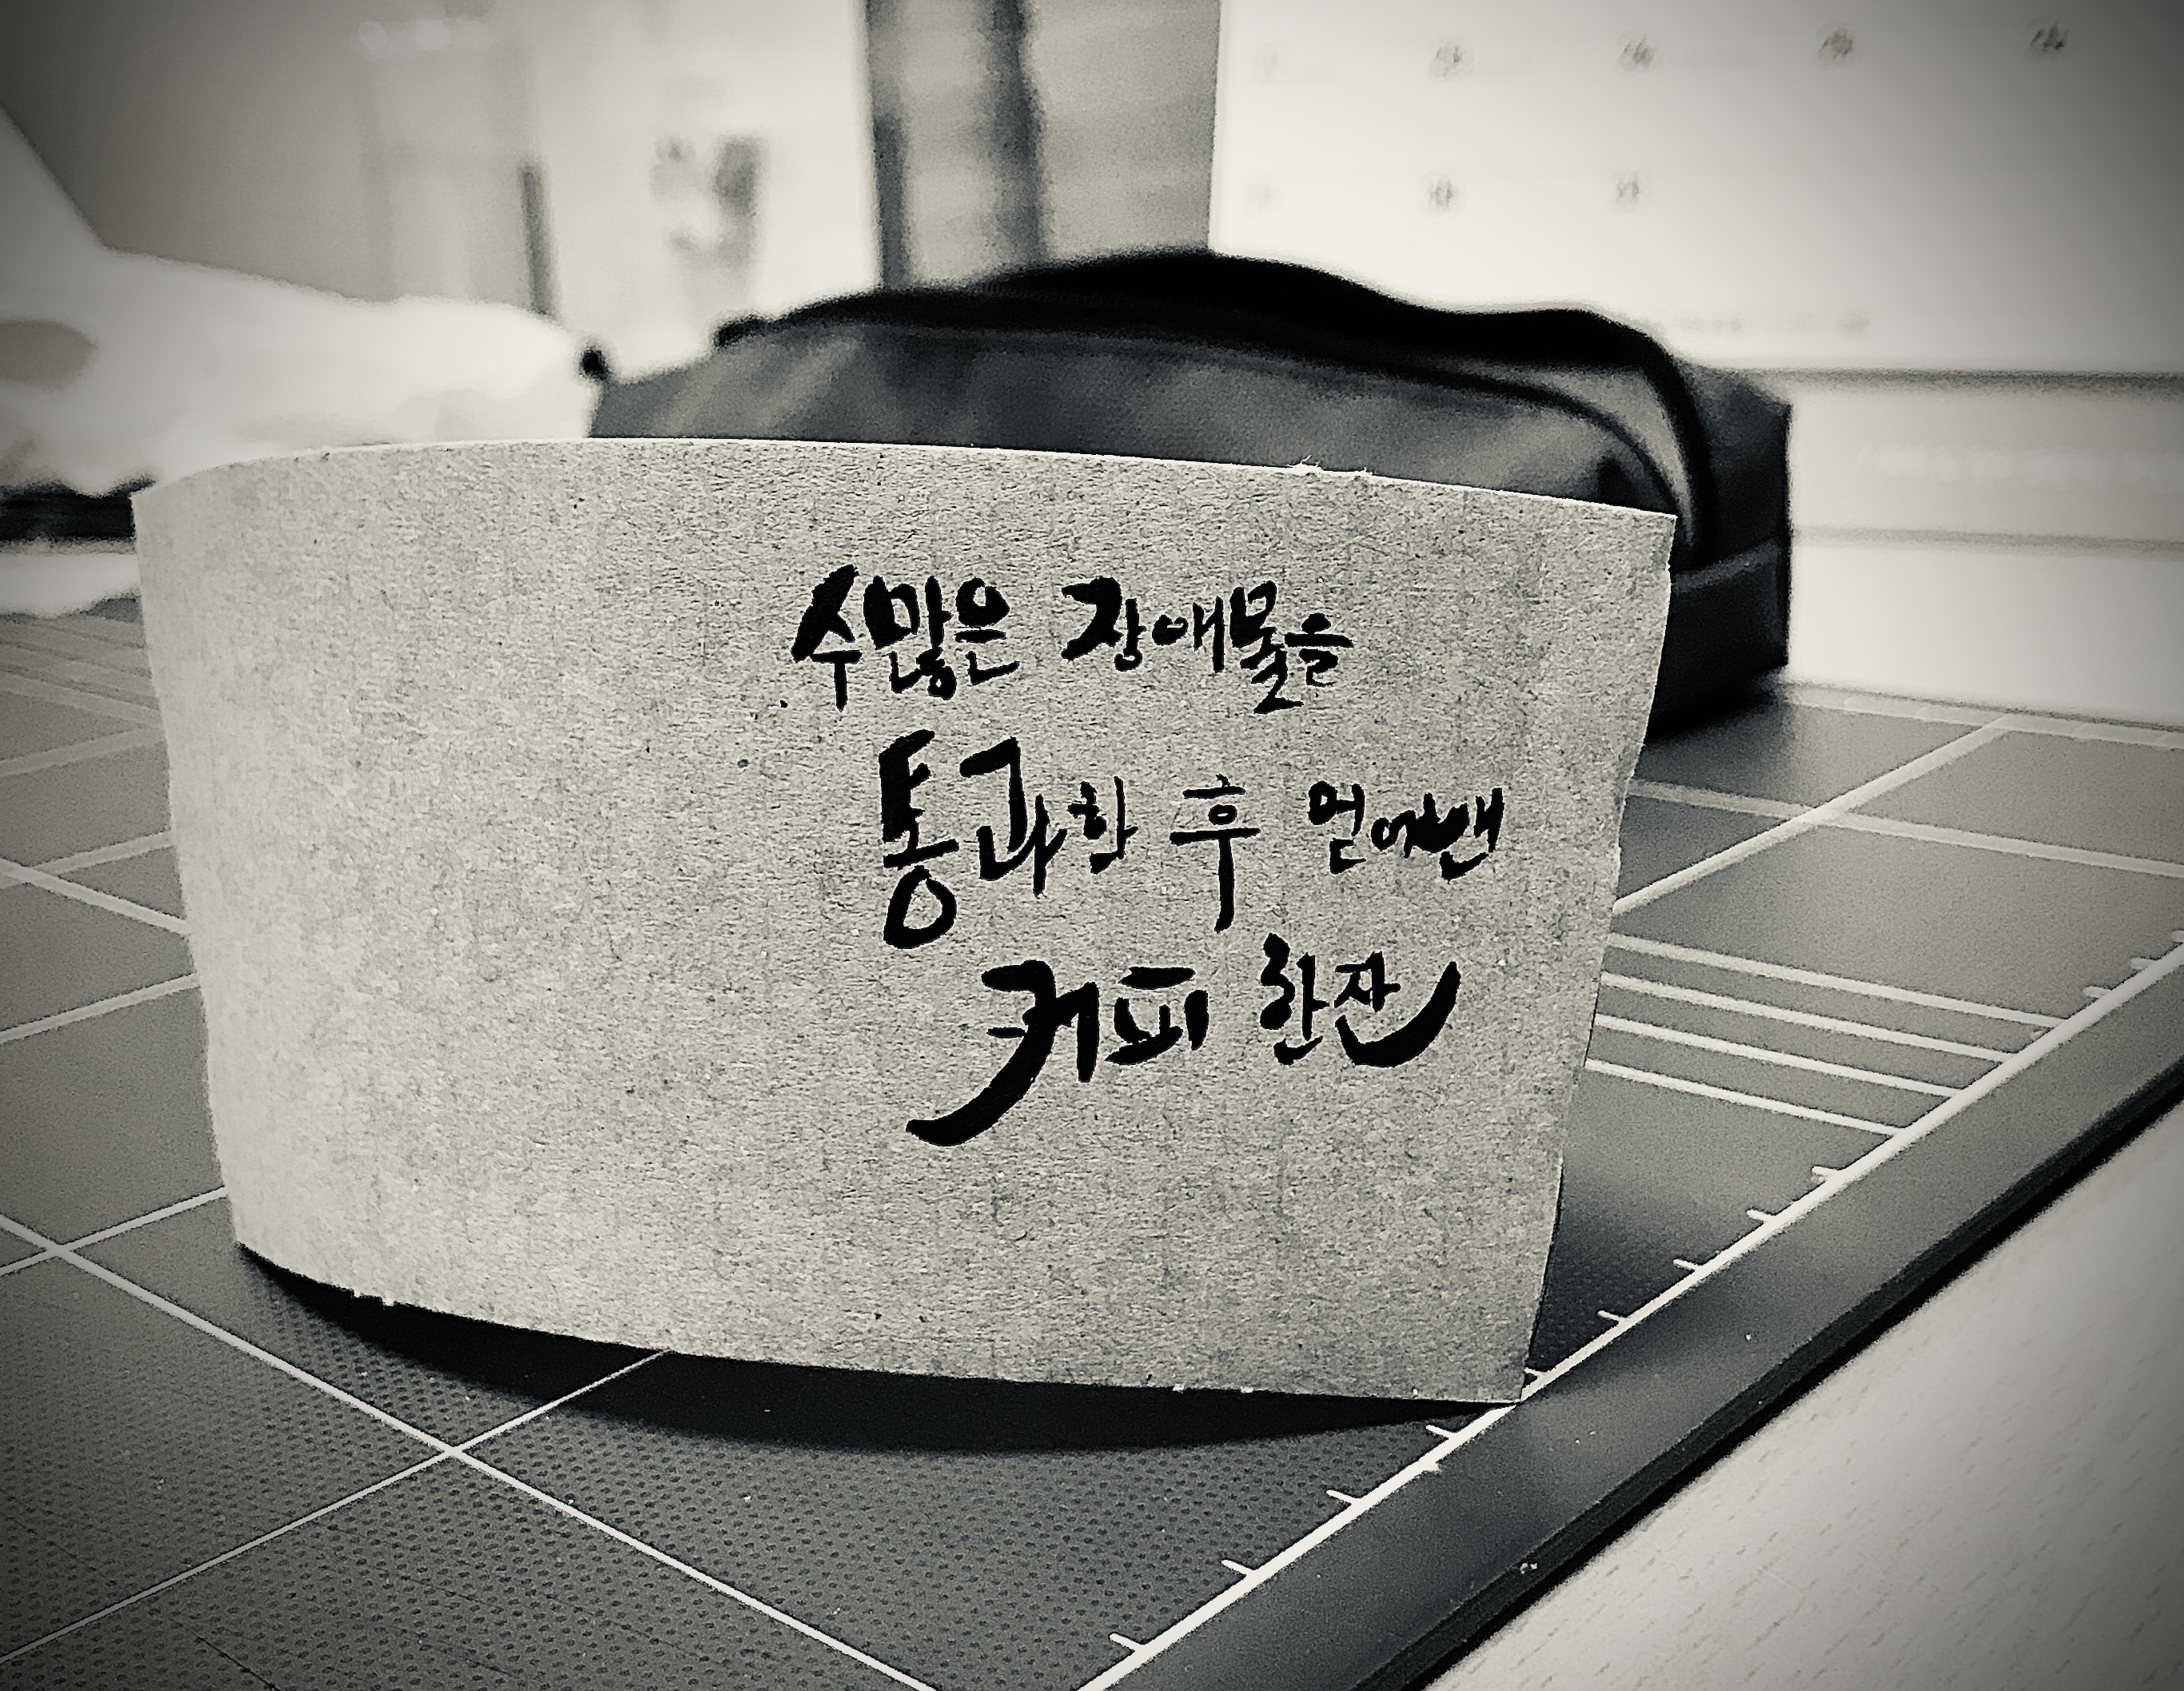 수많은 장애물을
통과한 후 얻어낸
커피 한잔